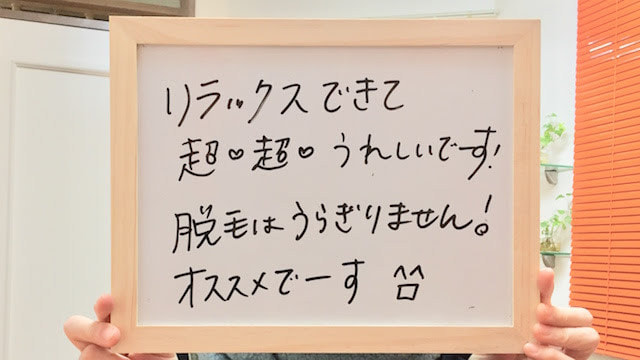 リラックスできて
超♡超♡うれしいでーす!
脱毛はうらぎりません!
オススメでーす ^^